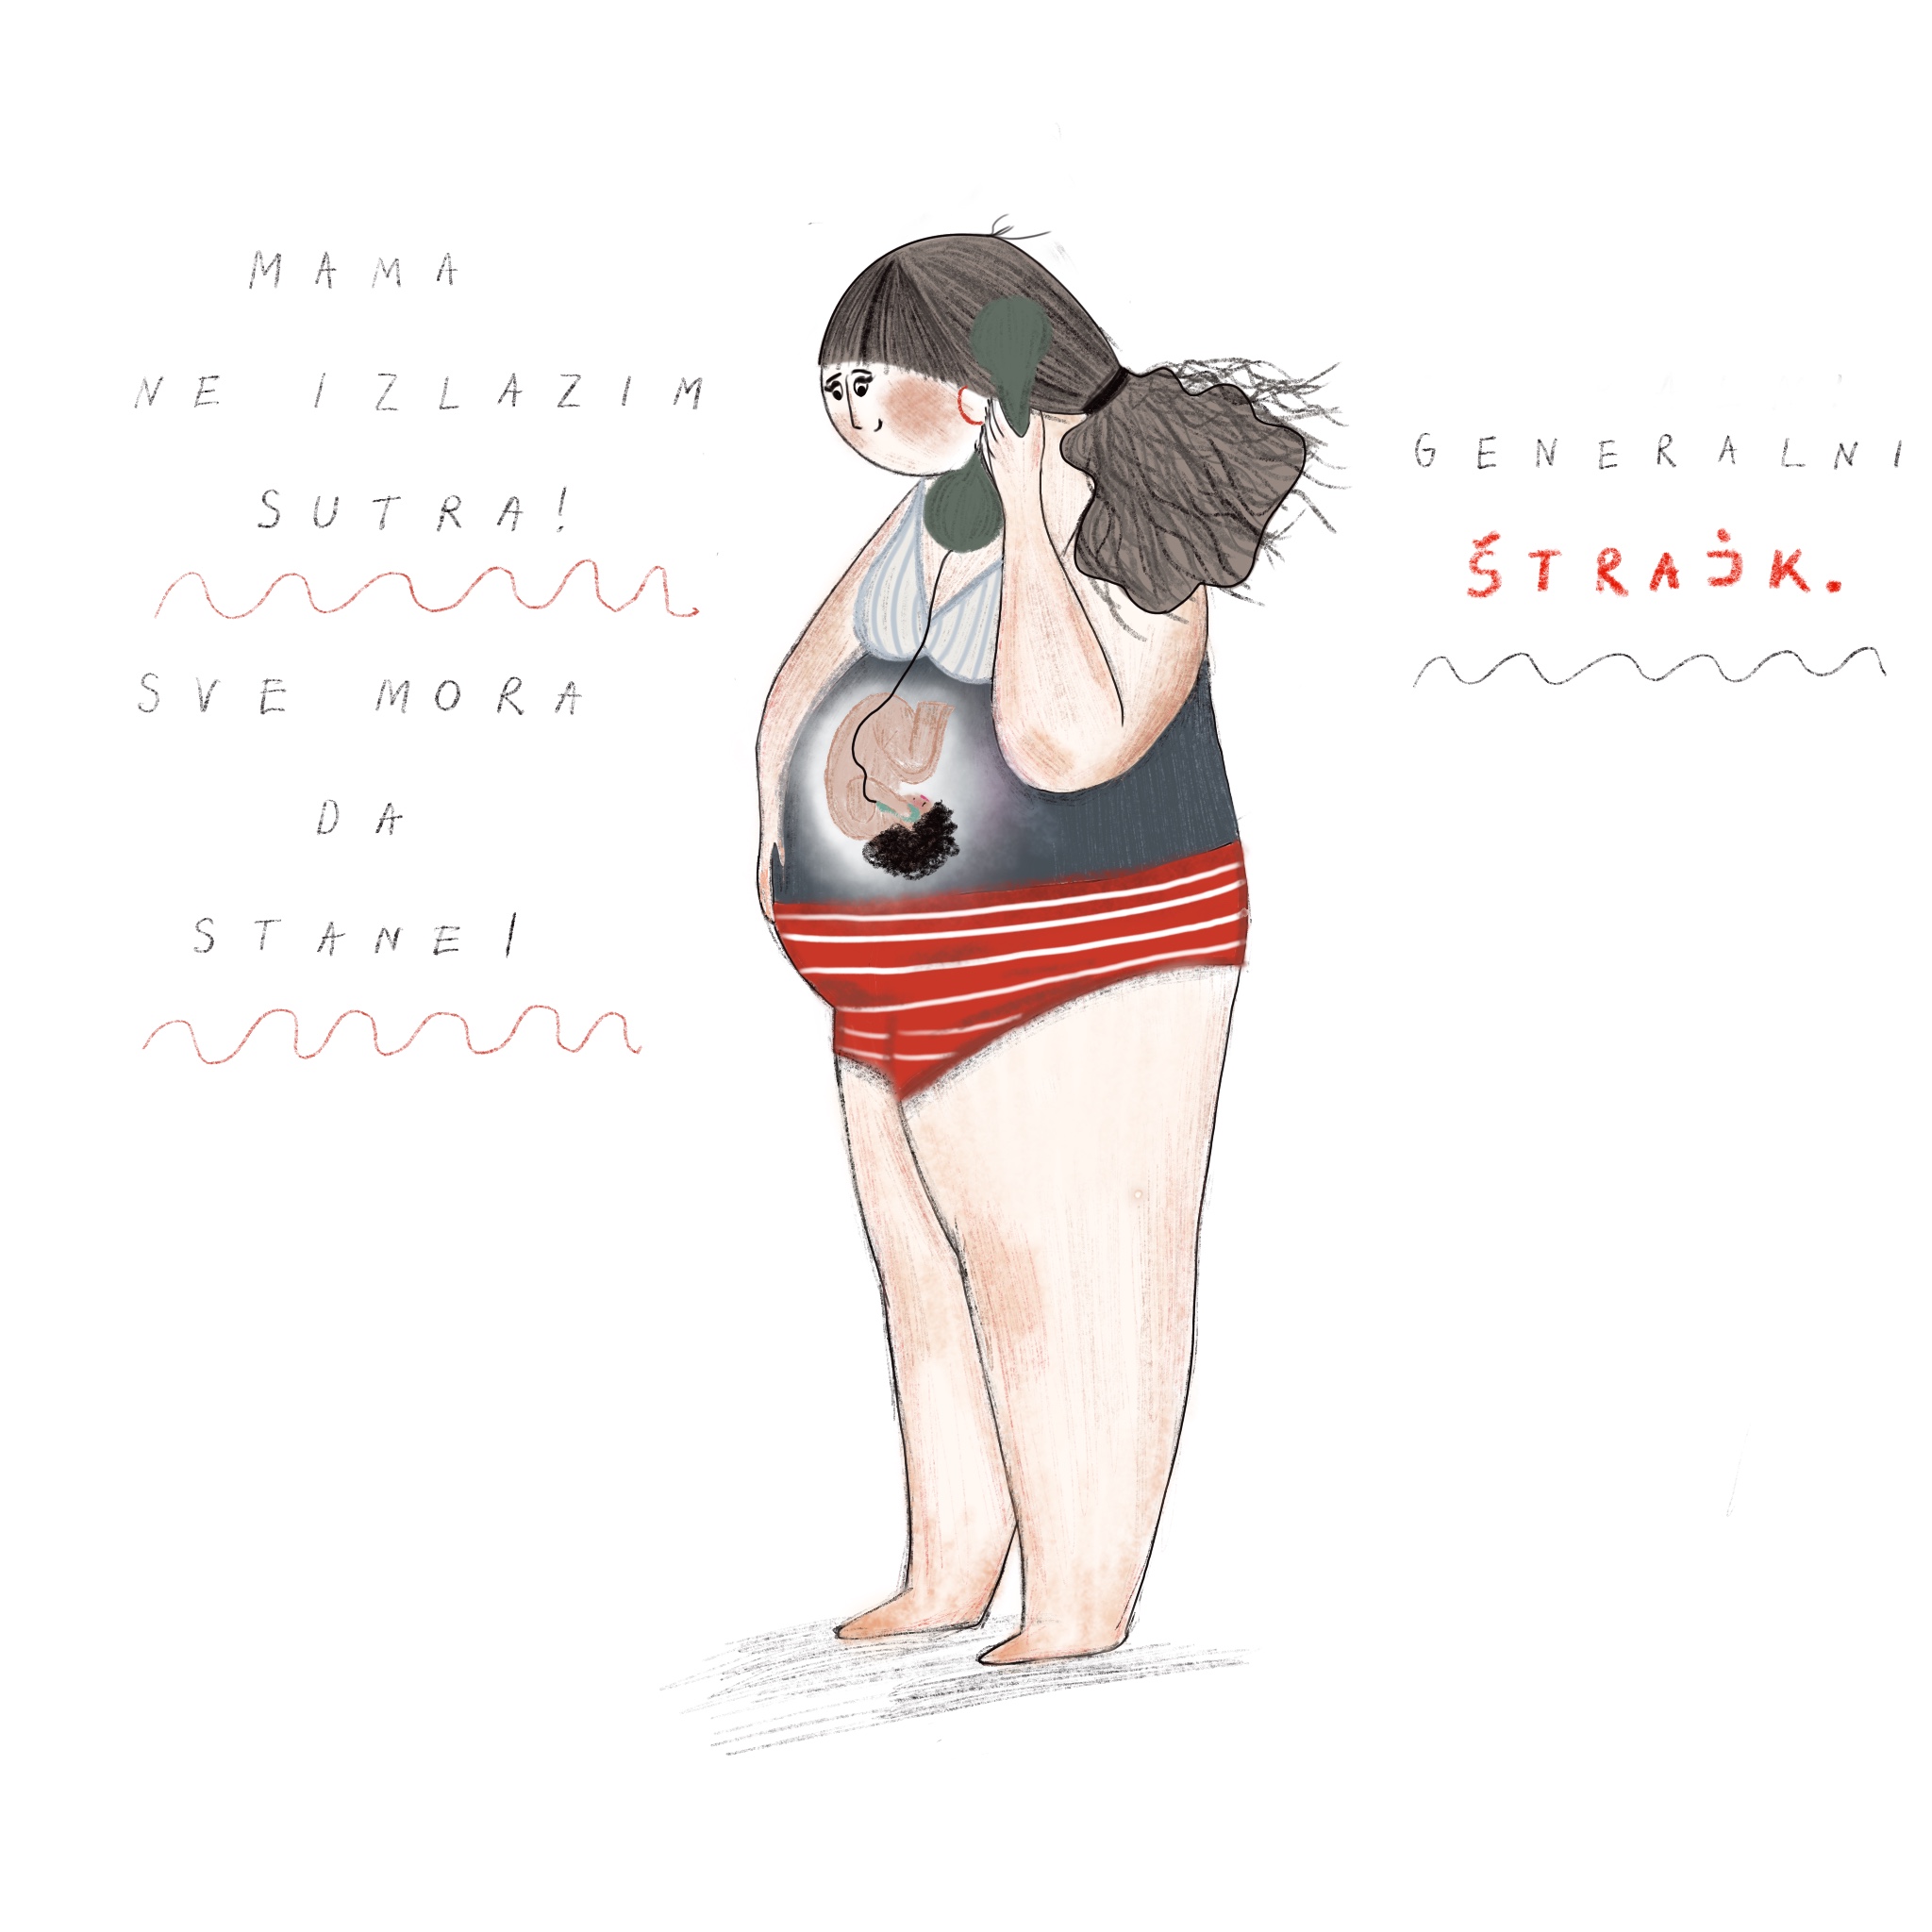 MAMA
NE IZLAZIM
SUTRA!
SVE MORA
DA
STANE!
GENERALNI
ŠTRAJK.